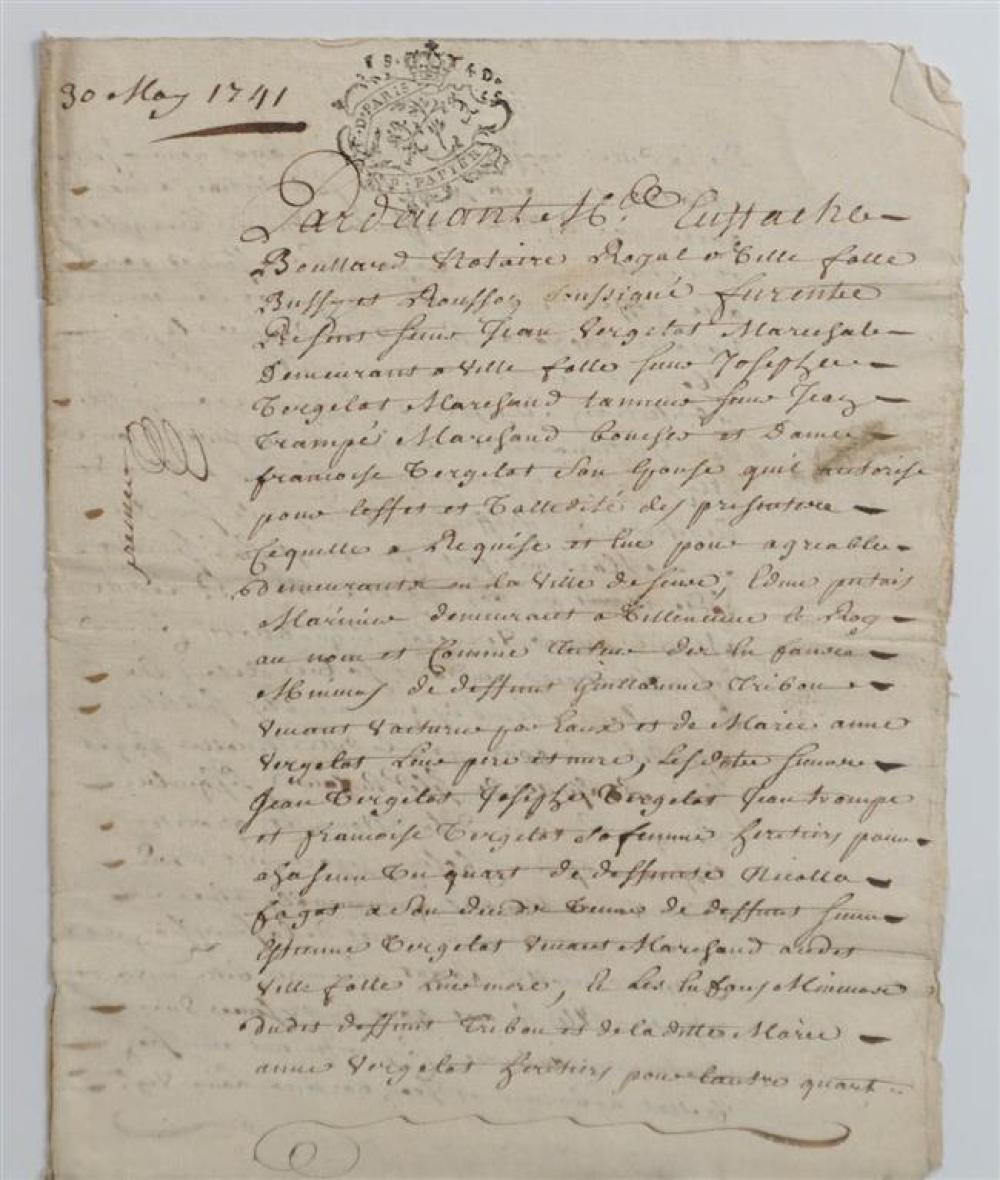 30 May 1741
G. D. PARIS
P. PAPIER
Pardevant Me Eustache
Boullard Notaire Royal a Ville folle
Bussy et Roussoy soussigné furente
Présens sieur Jean Vergelot Marechal
Demeurant a Ville folle sieur Joseph
Vergelot Marchand tanneur sieur Jean
Trampé Marchand boucher et Dame
francoise Vergelot son Epouse quil autorise
pour leffet et Vallidité des presentes
Cequelle a Requise et Eue pour agreable
demeurants en la Ville de , Edme potais
Marinier demeurant a Villeneuve le Roy
au nom et Comme tuteur des Enfans
Mineurs de deffunt Guillaume Tribou
Vivant Voiturier par Eaux et de Marie anne
Vergelot Leur pere et mere, Lesdits sieurs
Jean Vergelot Joseph Vergelot Jean trompe
et francoise Vergelot sa femme heritiers pour
chascun Un quart de deffunte Nicolle
fagot a son deceds Veuve de deffunt sieur
Estienne Vergelot Vivant Marchand audit
Ville folle Leur mere, Et Les Enfans Mineurs
dudit deffunt Tribou et de laditte Marie
anne Vergelot heritiers pour lautre quart
premier